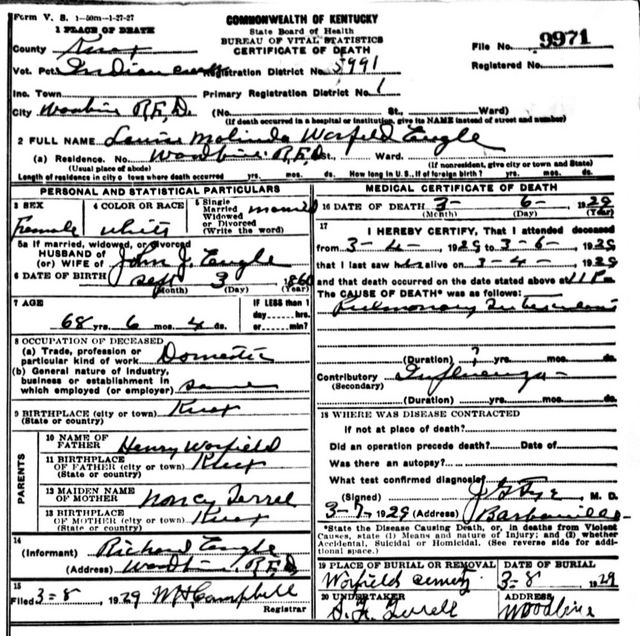 Form V. S. 1-50m-1-27-27
COMMONWEALTH OF KENTUCKY
State Board of Health
BUREAU OF VITAL STATISTICS
CERTIFICATE OF DEATH
1 PLACE OF DEATH
County Knox
File No. 9971
Registered No.
Vot. Pct. Indian Registration District No. 5991
Inc. Town Primary Registration District No. 1
City Woodbine R.F.D. (No. St., Ward)
(If death occurred in a hospital or institution, give its NAME instead of street and number)
2 FULL NAME Malinda Warfield Engle
(a) Residence. No. Woodbine R.F.D. St. Ward.
(Usual place of abode) (If nonresident, give city or town and State)
Length of residence in city or town where death occurred yrs. mos. ds. How long in U.S., if of foreign birth? yrs. mos. ds.
PERSONAL AND STATISTICAL PARTICULARS
3 SEX
Female
4 COLOR OR RACE
White
5 Single
Married
Widowed
or Divorced
(Write the word)
married
5a If married, widowed, or divorced
HUSBAND OF
(or) WIFE OF John J. Engle
6 DATE OF BIRTH Sept 3 1860
(Month) (Day) (Year)
7 AGE
68 yrs. 6 mos. 4 ds.
IF LESS than 1
day hrs.
or min?
8 OCCUPATION OF DECEASED
(a) Trade, profession or
particular kind of work Domestic
(b) General nature of industry,
business or establishment in
which employed (or employer) same
9 BIRTHPLACE (city or town) Knox
(State or country)
PARENTS
10 NAME OF
FATHER Henry Warfield
11 BIRTHPLACE
OF FATHER (city or town) Knox
(State or country)
12 MAIDEN NAME
OF MOTHER Nancy Terrel
13 BIRTHPLACE
OF MOTHER (city or town) Knox
(State or country)
14
(Informant) Richard Engle
(Address) Woodbine R.F.D.
15
Filed 3-8, 1929 Campbell
Registrar
MEDICAL CERTIFICATE OF DEATH
16 DATE OF DEATH 3- 6- 1929
(Month) (Day) (Year)
17
I HEREBY CERTIFY, That I attended deceased
from 3-4-, 1929 to 3-6-, 1929
that I last saw alive on 3-4-, 1929
and that death occurred on the date stated above at 11P m.
The CAUSE OF DEATH* was as follows:
Pulmonary Tuberculosis
(Duration) ? yrs. mos. ds.
Contributory Influenza
(Secondary)
(Duration) yrs. mos. ds.
18 WHERE WAS DISEASE CONTRACTED
If not at place of death?
Did an operation precede death? Date of
Was there an autopsy?
What test confirmed diagnosis?
(Signed) M. D.
3-7, 1929 (Address) Barbourville
*State the Disease Causing Death, or, in deaths from Violent
Causes, state (1) Means and nature of Injury; and (2) whether
Accidental, Suicidal or Homicidal. (See reverse side for addi-
tional space.)
19 PLACE OF BURIAL OR REMOVAL
Warfield Cemetery
DATE OF BURIAL
3-8 1929
20 UNDERTAKER
ADDRESS
Woodbine